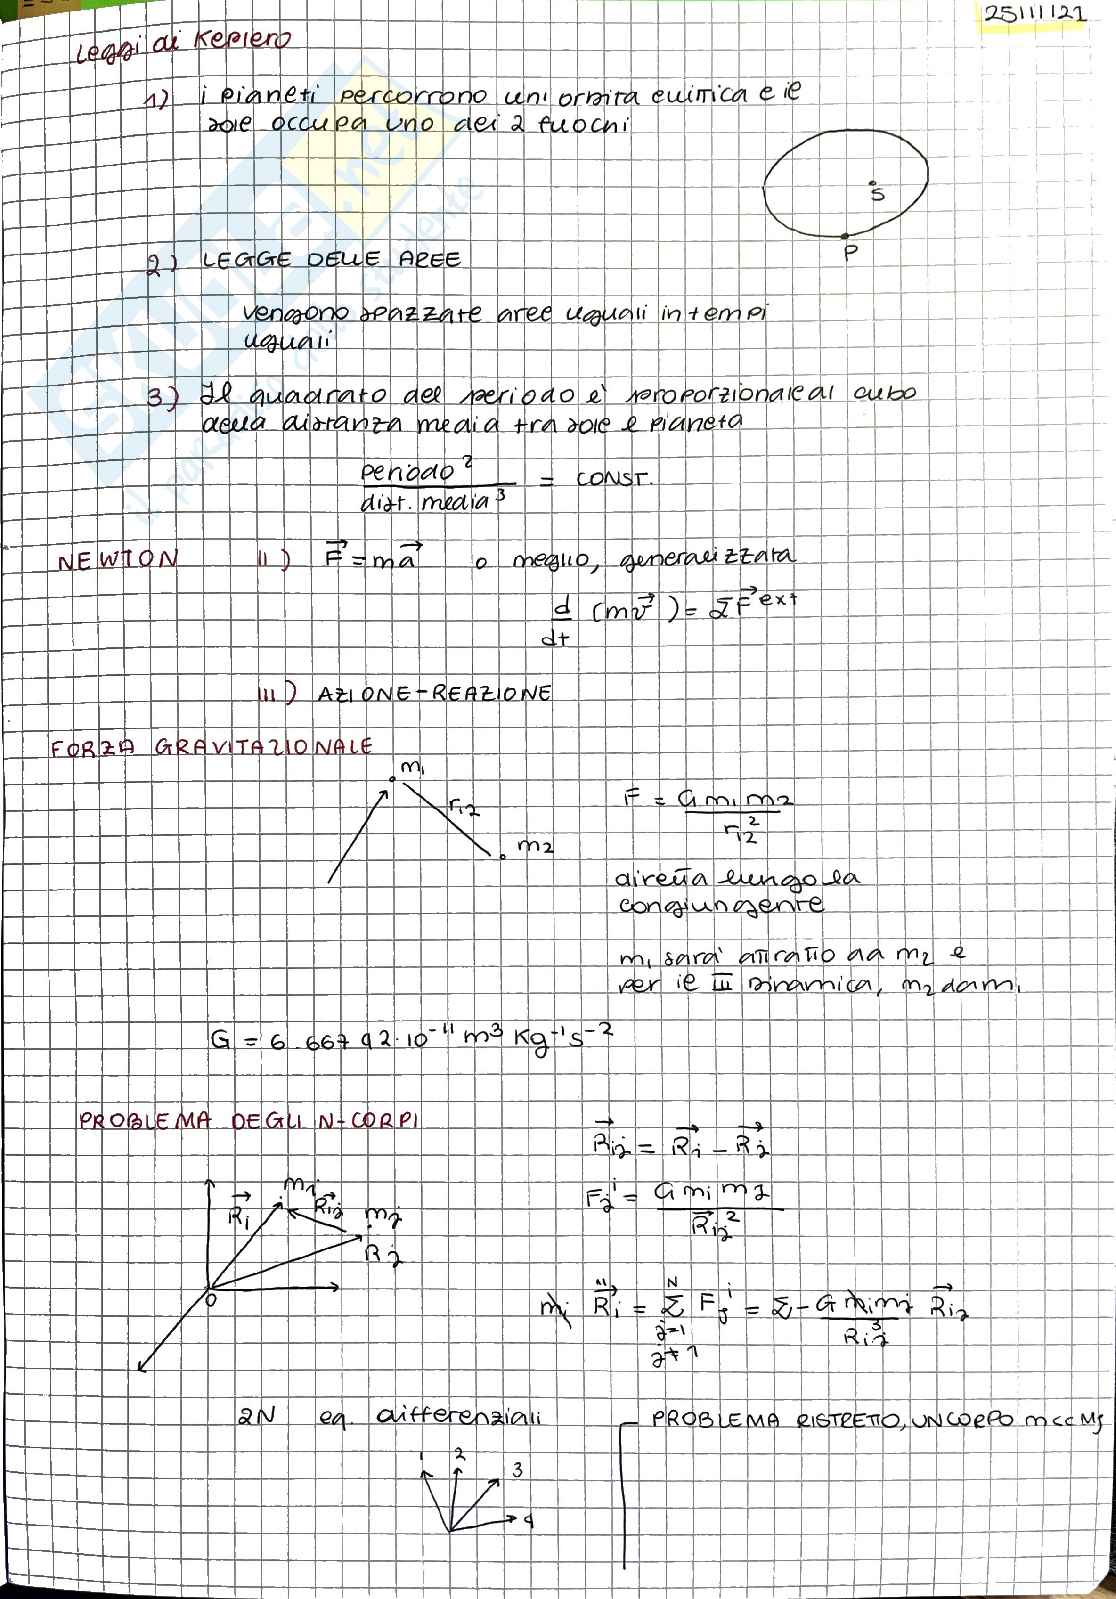 25111121
Leggi di Keplero
1) i pianeti percorrono un'orbita ellittica e il
sole occupa uno dei 2 fuochi
S
P
2) LEGGE DELLE AREE
vengono spazzate aree uguali in tempi
uguali
3) Il quadrato del periodo è proporzionale al cubo
della distanza media tra sole e pianeta
periodo² / dist. media³ = CONST.
NEWTON II) F⃗ = ma⃗ o meglio, generalizzata
d/dt (mv⃗) = ΣF⃗ ext
III) AZIONE-REAZIONE
FORZA GRAVITAZIONALE
m₁
r₁₂
m₂
F = G m₁ m₂ / r₁₂²
diretta lungo la
congiungente
m₁ sarà attratto da m₂ e
per il III dinamica, m₂ da m₁
G = 6.66742·10⁻¹¹ m³ Kg⁻¹ s⁻²
PROBLEMA DEGLI N-CORPI
R⃗ij = R⃗i - R⃗j
mi
R⃗i
R⃗ij
mj
Rj
O
Fjⁱ = G mi mj / R⃗ij²
mi R⃗̈i = Σ j=1 j≠i N Fjⁱ = Σ - G mi mj / Rij³ R⃗ij
2N eq. differenziali
PROBLEMA RISTRETTO, UN CORPO m<<Mj
1 2 3 4